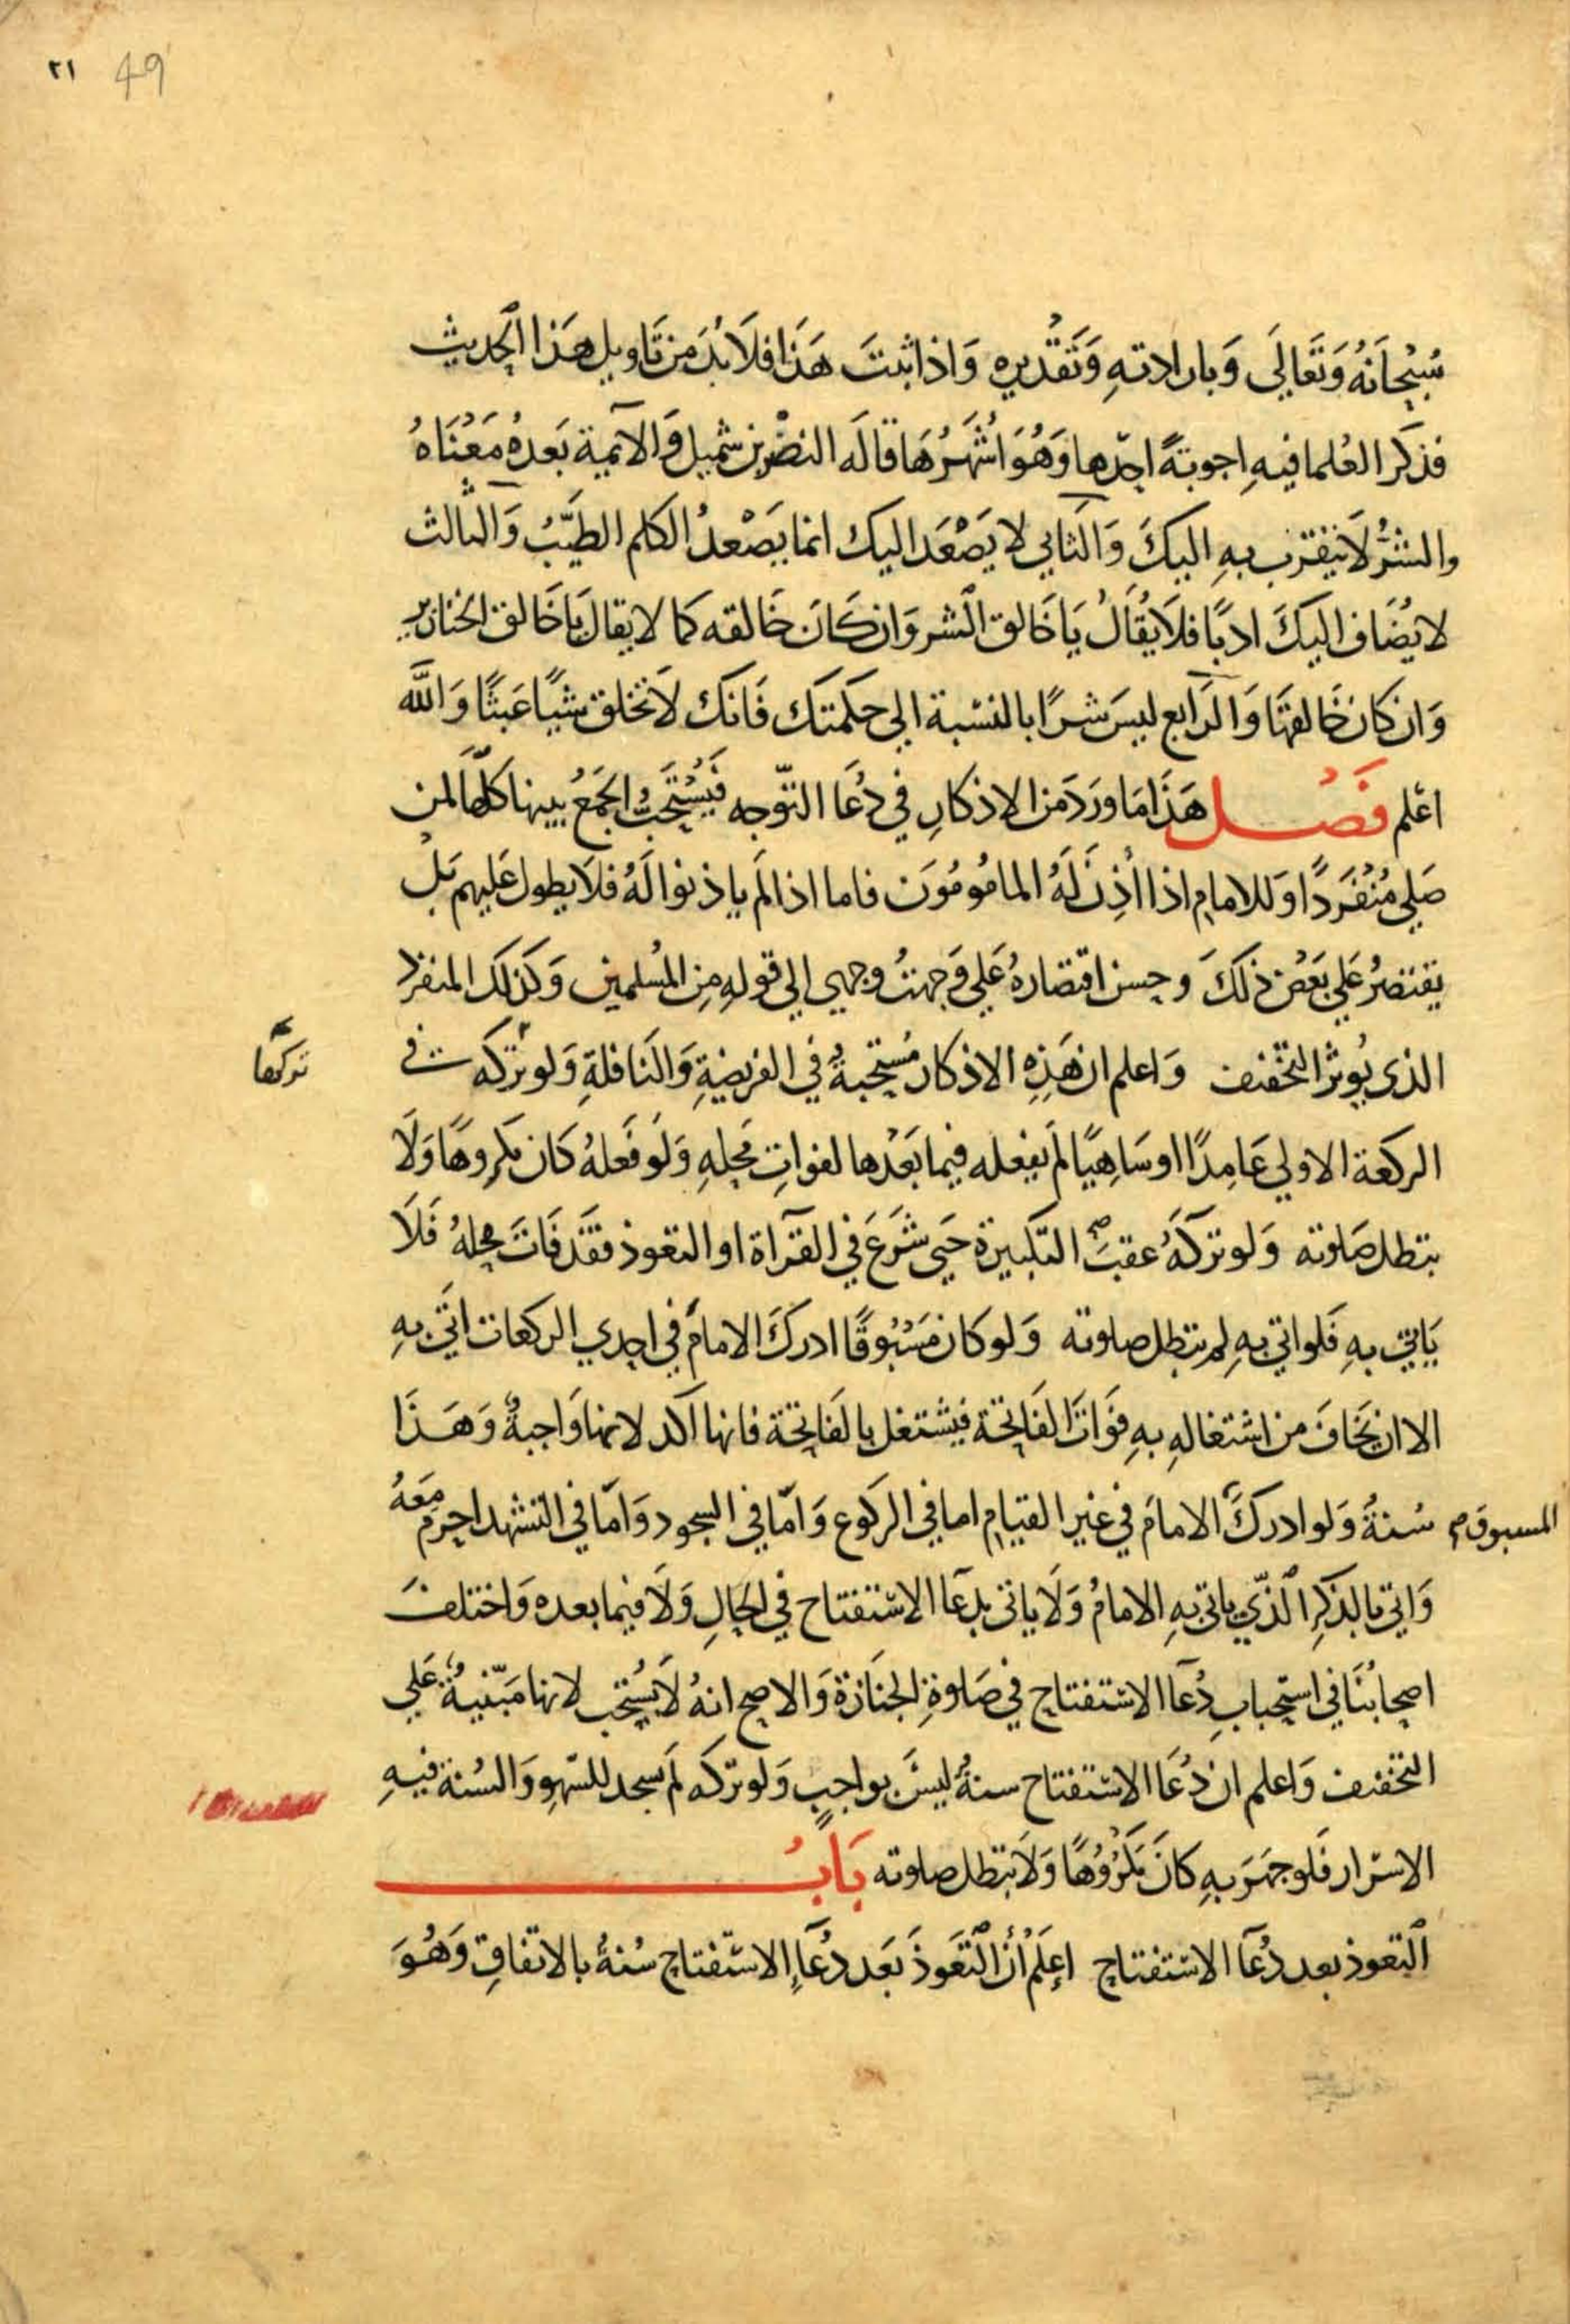 ٢١ 49
سُبْحَانَهُ وَتَعَالَى وَبارادتهِ وَتَقْدِيرِهِ وَاذا ثبتَ هَذَا فلَابُدَ مِن تَاويل هَذا الحديث
فذكَر العُلما فيهِ اجوبةً احدها وَهُوَ اشْهَرُهَا قالَه النضْر بن شميل وَالآئمِية بَعدهُ مَعْنَاهُ
والشرُّ لَا يتقرب بهِ اليكَ وَالثاني لا يَصْعَد اليك انما يَصْعدُ الكلم الطيّبُ وَالثالث
لا يُضَاف اليكَ ادبًا فلَا يُقَالُ يَا خَالق الشر وَان كَانَ خَالقه كما لا يقال يَا خَالق الخنازير
وَان كان خَالقهَا وَالرَابع ليسَ شرًا بالنسْبة الي حكمتك فَانك لَا تخلق شيًا عَبثًا وَاللَّه
اعْلم فَصْل هَذَا مَا ورَدَ من الاذكارِ في دُعَا التوّجه فَيُسْتَحَبُّ الجَمعُ بينها كلّهَا لمن
صَلي مُنْفَردًا وَللامامِ اذا اُذِنَ لَهُ المامُومُوَن فاما اذا لَم ياذنوا لَهُ فلَا يطول عَليهم بَلْ
يقتصرُ عَلي بَعْض ذلكَ وحسن اقتصارهُ عَلي وَجهتُ وجهي الي قولهِ مِن المُسلمين وَكذلكَ المنفرد
الذى يُوثر التخْفيف وَاعلم ان هَذِهِ الاذكار مُستحبةٌ في الفريضةِ وَالنَافلةِ وَلو تركه في
تركها
الركعة الاولي عَامِدًا اوسَاهِيًا لَم يفعله فيما بَعْدها لفواتِ مَحلهِ وَلَو فَعلهُ كَان مَكرِوهًا وَلَا
تبطل صَلوته وَلو تركَهُ عقبَ التكبيرة حَتي شَرَعَ في القرآة او التعوذ فقَد فَاتَ محلهُ فَلَا
يَاتي بهِ فَلو اتي بهِ لم تبطل صلوته وَلو كان مَسْبُوقًا ادركَ الامامَ في احدي الركعات اتَي بهِ
الا ان يخَافَ من اشتغالهِ بهِ فوَاتَ الفَاتحة فيشتغل بالفَاتحة فانها اكد لانها وَاجبةٌ وَهَذَا
المسبوق م سُنةٌ وَلو ادركَ الامامَ في غير القيامِ اما في الركوع وَامّا في السجود وَامّا في التشهد احرم مَعَهُ
وَاتي بالذكرِ الّذي ياتي بهِ الامامُ وَلَا ياتي بدعَا الاسْتفتاح في الحالِ وَلَا فيما بعده وَاختلفَ
اصحابُنَا في استحبابِ دُعَآ الاسْتفتاح في صَلوةِ الجنَازة وَالاصح انهُ لَا يُستحب لانها مَبْنيةٌ عَلي
التخفيف وَاعلم ان دُعَا الاسْتفتاح سنةٌ ليسَ بواجبٍ وَلو تركه لَم يسجد للسّهو وَالسُنة فيهِ
الاسْرار فَلو جَهرَ بهِ كانَ مَكْرُوُهًا وَلَا تبطل صلوته بَابُ
التعوذ بعد دُعَآ الاسْتفتاح اِعلَمْ أن التعَوذَ بَعَد دُعَآءِ الاسْتفتاح سُنةٌ بالاتفاقِ وَهُوَ